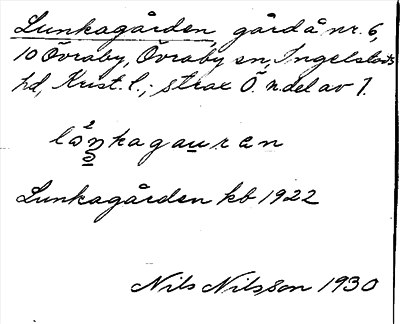 Lunkagården, gård å nr. 6,
10 Övraby, Övraby sn, Ingelstads
hd, Krist. l.; strax Ö. n. del av 1.
Lunkagården kb 1922
Nils Nilsson 1930